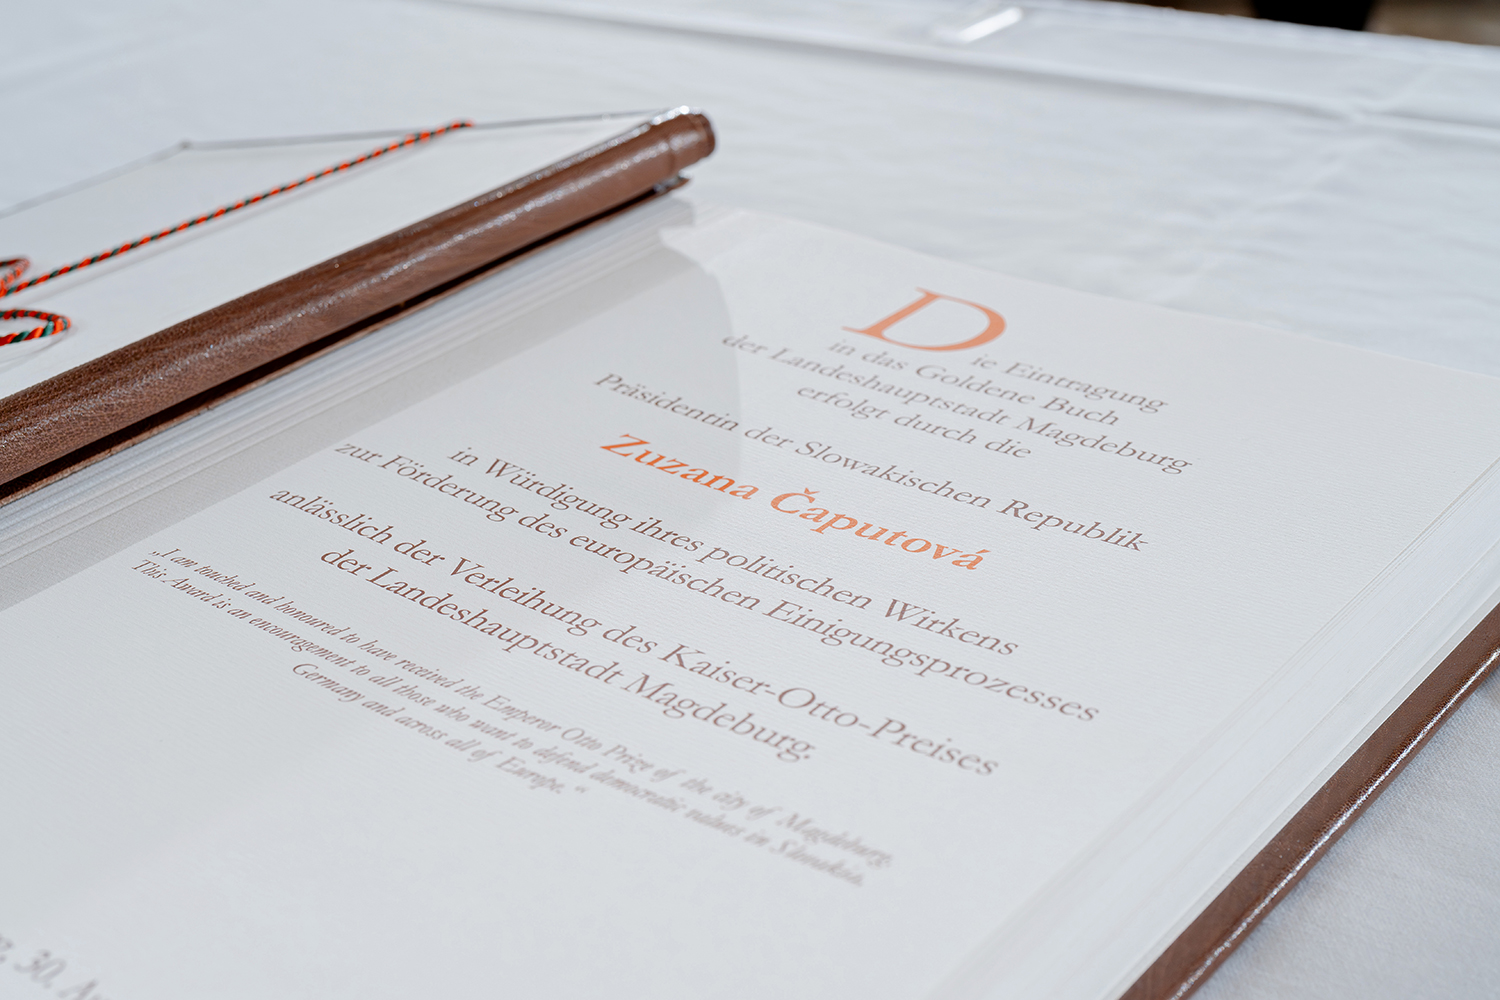 Die Eintragung
in das Goldene Buch
der Landeshauptstadt Magdeburg
erfolgt durch die
Präsidentin der Slowakischen Republik
Zuzana Čaputová
in Würdigung ihres politischen Wirkens
zur Förderung des europäischen Einigungsprozesses
anlässlich der Verleihung des Kaiser-Otto-Preises
der Landeshauptstadt Magdeburg.
„I am touched and honoured to have received the Emperor Otto Prize of the city of Magdeburg.
This Award is an encouragement to all those who want to defend democratic values in Slovakia,
Germany and across all of Europe.“
30.